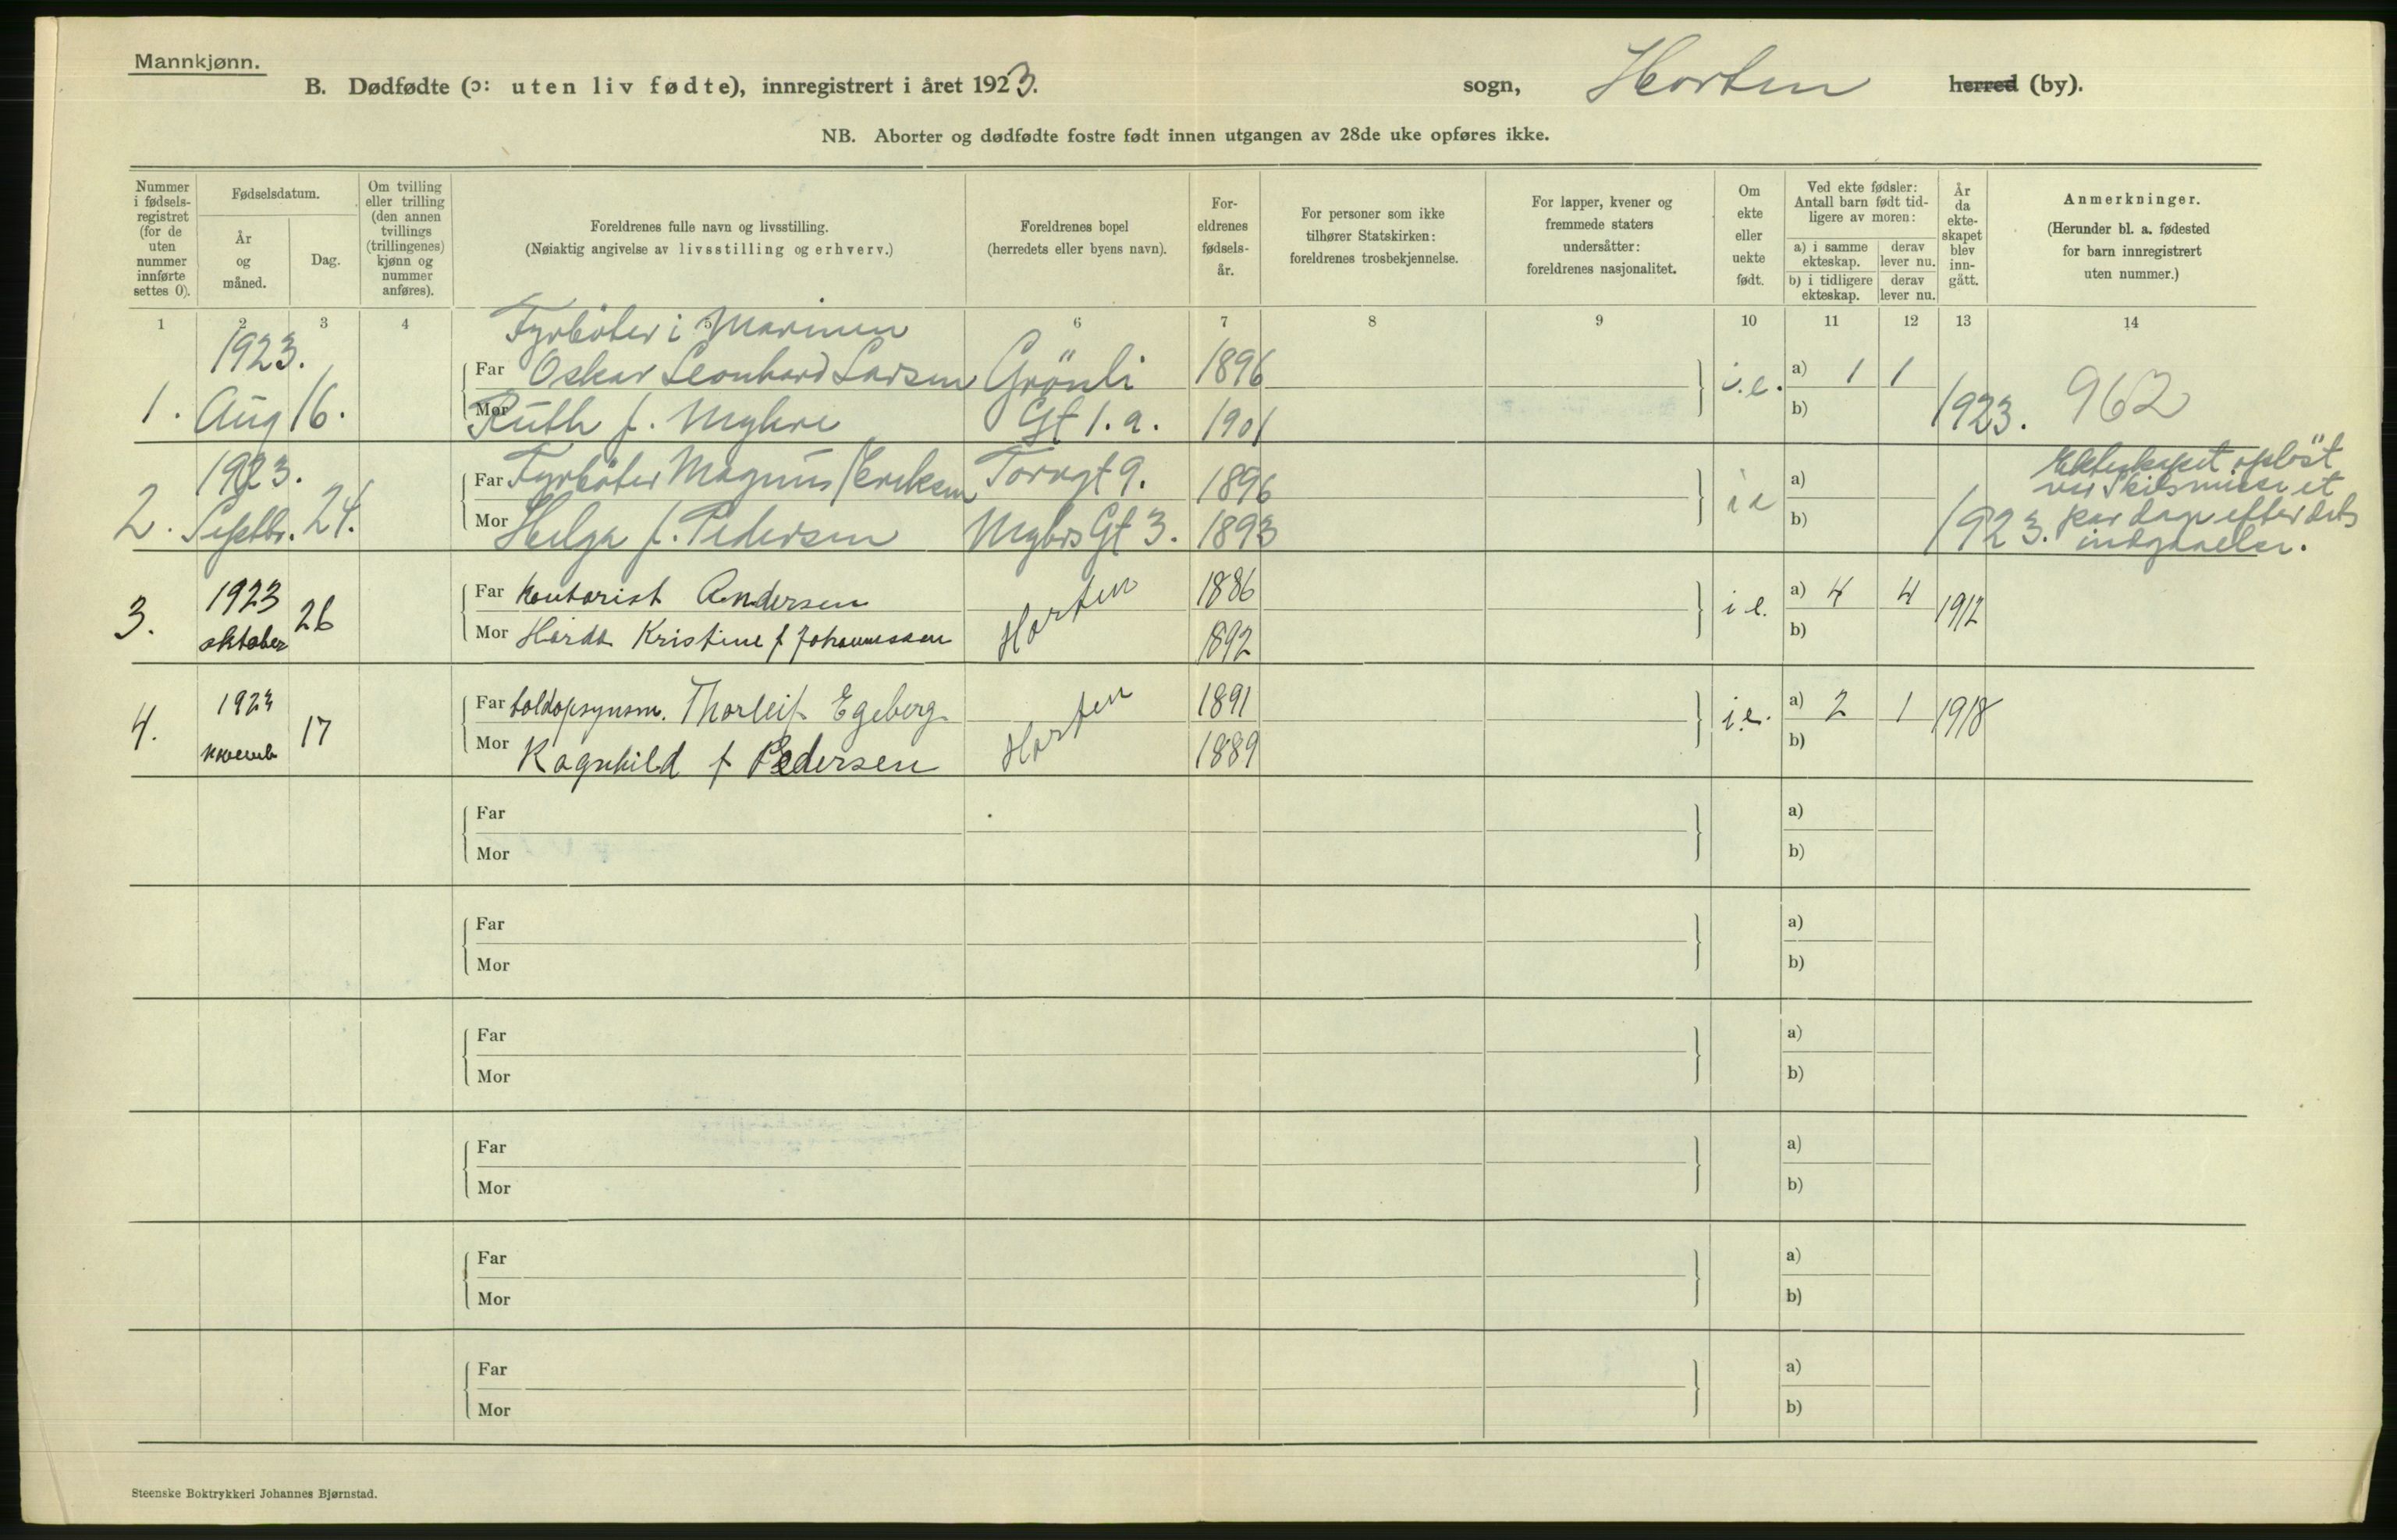 Mannkjønn.
B. Dødfødte (ɔ: uten liv fødte), innregistrert i året 1923.
sogn, Horten herred (by).
NB. Aborter og dødfødte fostre født innen utgangen av 28de uke opføres ikke.
Nummer i fødsels- registret (for de uten nummer innførte settes 0).
Fødselsdatum.
År og måned.
Dag.
Om tvilling eller trilling (den annen tvillings (trillingenes) kjønn og nummer anføres).
Foreldrenes fulle navn og livsstilling.
(Nøiaktig angivelse av livsstilling og erhverv.)
Foreldrenes bopel
(herredets eller byens navn).
For- eldrenes fødsels- år.
For personer som ikke tilhører Statskirken: foreldrenes trosbekjennelse.
For lapper, kvener og fremmede staters undersåtter: foreldrenes nasjonalitet.
Om ekte eller uekte født.
Ved ekte fødsler: Antall barn født tid- ligere av moren:
a) i samme ekteskap.
derav lever nu.
b) i tidligere ekteskap.
derav lever nu.
År da ekte- skapet blev inn- gått.
Anmerkninger.
(Herunder bl. a. fødested for barn innregistrert uten nummer.)
1 2 3 4 5 6 7 8 9 10 11 12 13 14
Fyrböter i Marinen
1923.
Far Oskar Leonhard Larsen Grönli 1896 i.e. a) 1 1
1. Aug 16. Mor Ruth f. Myhre Gt 1.a. 1901 b) 1923. 962
1923.
Far Fyrböter Magnus Eriksen Torvgt 9. 1896 i e a)
2. Septbr. 24. Mor Helga f. Pedersen Myhrs Gt 3. 1893 b) 1923.
Ekteskapet opløst
ved Skilsmisse et
par dage efter dets
indgaaelse.
1923
Far Kontorist Andersen Horten 1886 i e. a) 4 4 1912
3. oktober 26 Mor Kristine f Johannessen 1892 b)
1923
Far toldopsynsm. Thorleif Egeberg Horten 1891 i.e. a) 2 1 1918
4. novemb 17 Mor Ragnhild f Pedersen 1889 b)
Far a)
Mor b)
Far a)
Mor b)
Far a)
Mor b)
Far a)
Mor b)
Far a)
Mor b)
Far a)
Mor b)
Steenske Boktrykkeri Johannes Bjørnstad.